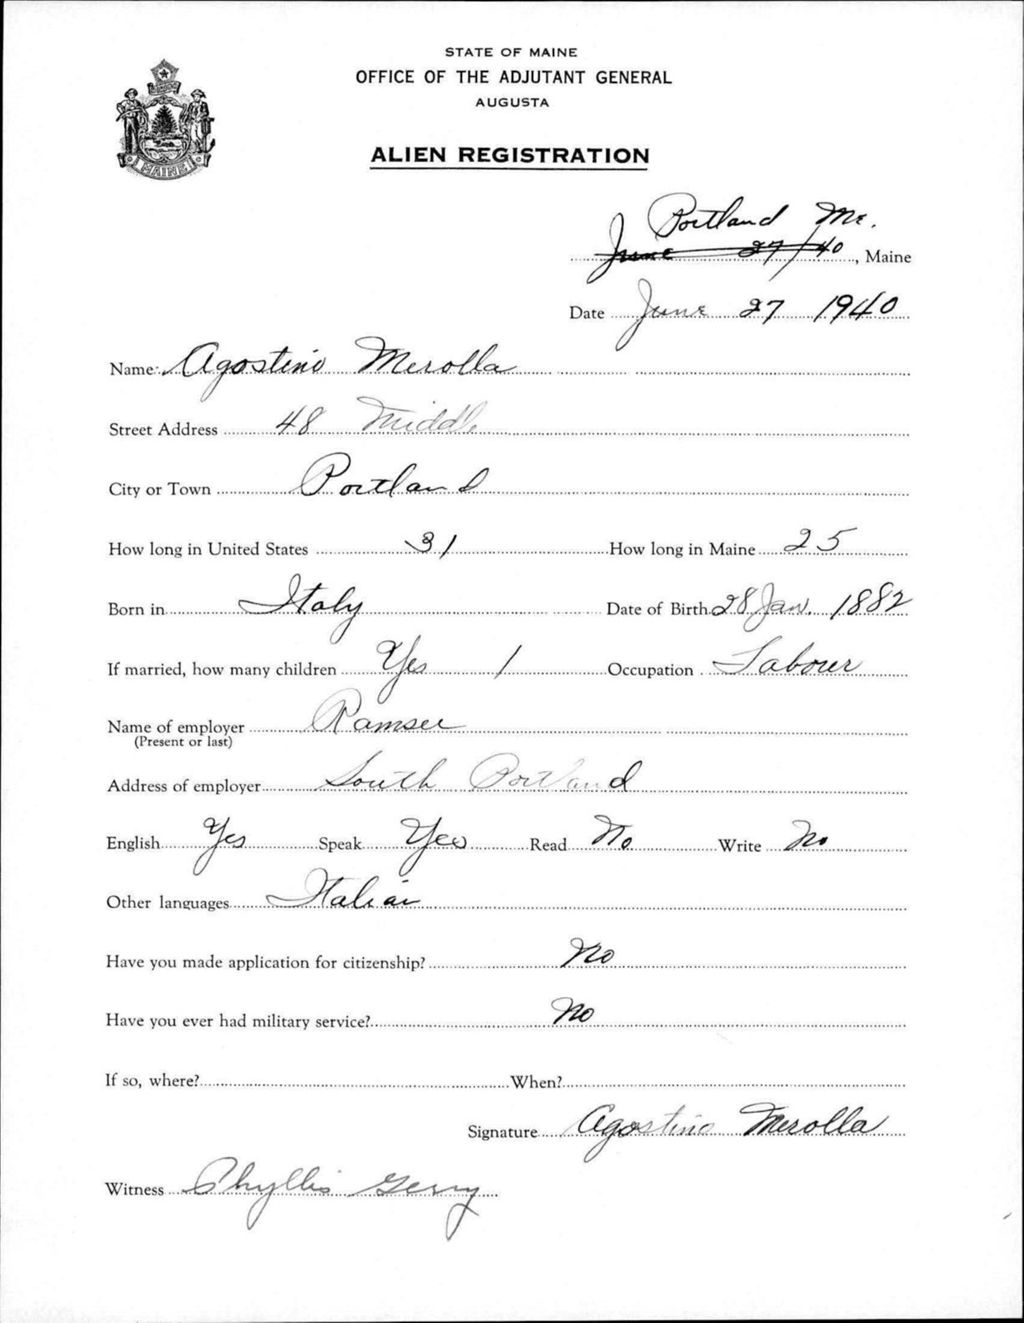 STATE OF MAINE
OFFICE OF THE ADJUTANT GENERAL
AUGUSTA
ALIEN REGISTRATION
MAINE
Portland Me.
June 27/40, Maine
Date June 27 1940
Name Agostino Merolla
Street Address 48 Middle
City or Town Portland
How long in United States 31 How long in Maine 25
Born in Italy Date of Birth 28 Jan. 1882
If married, how many children Yes 1 Occupation Labourer
Name of employer Ramser
(Present or last)
Address of employer South Portland
English Yes Speak Yes Read No Write No
Other languages Italian
Have you made application for citizenship? No
Have you ever had military service? No
If so, where? When?
Signature Agostino Merolla
Witness Phyllis Gerry